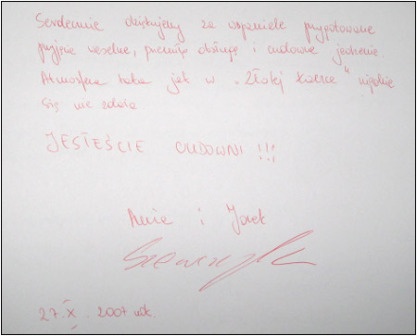 Serdecznie dziękujemy za wspaniale przygotowane
przyjęcie weselne, przemiłą obsługę i cudowne jedzenie.
Atmosfera taka jak w "Złotej Kaczce" nigdzie
się nie zdarza
JESTEŚCIE CUDOWNI !!!
i Jacek
27. X. 2007 rok.